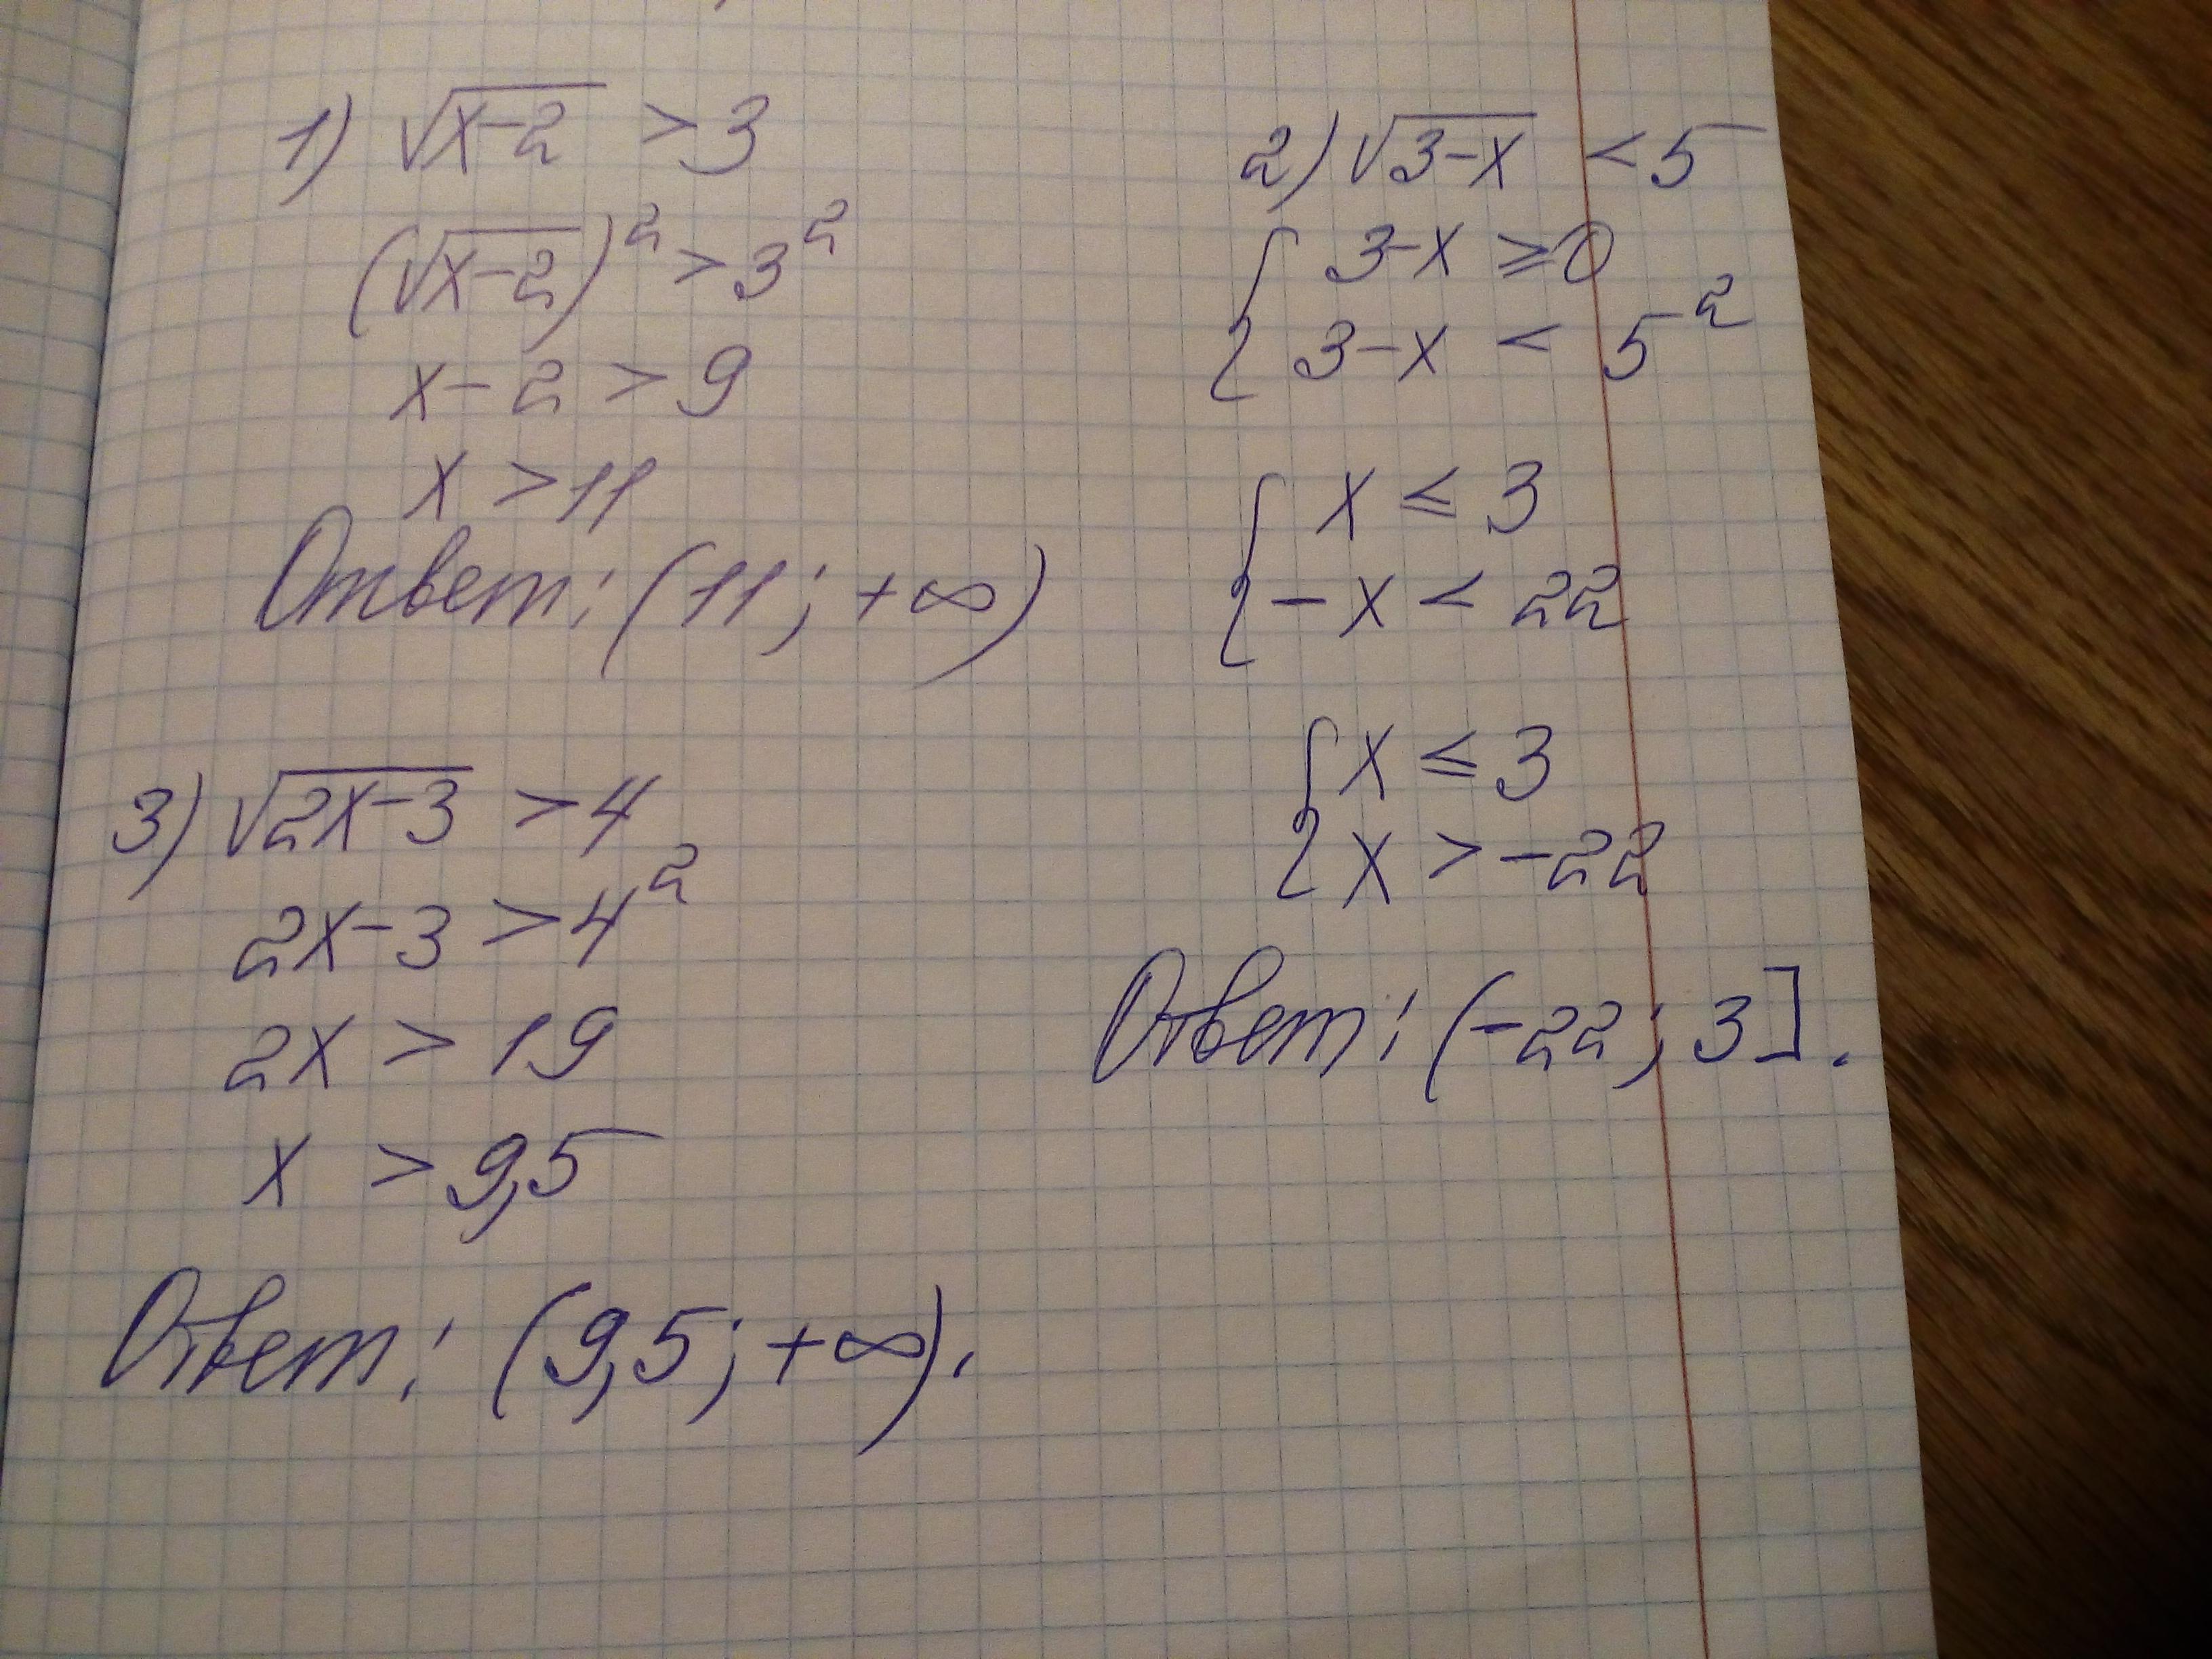 1) √(x-2) > 3
(√(x-2))² > 3²
x-2 > 9
x > 11
Ответ: (11; +∞)
2) √(3-x) < 5
{ 3-x ≥ 0
{ 3-x < 5²
{ x ≤ 3
{ -x < 22
{ x ≤ 3
{ x > -22
Ответ: (-22; 3].
3) √(2x-3) > 4
2x-3 > 4²
2x > 19
x > 9,5
Ответ: (9,5; +∞).